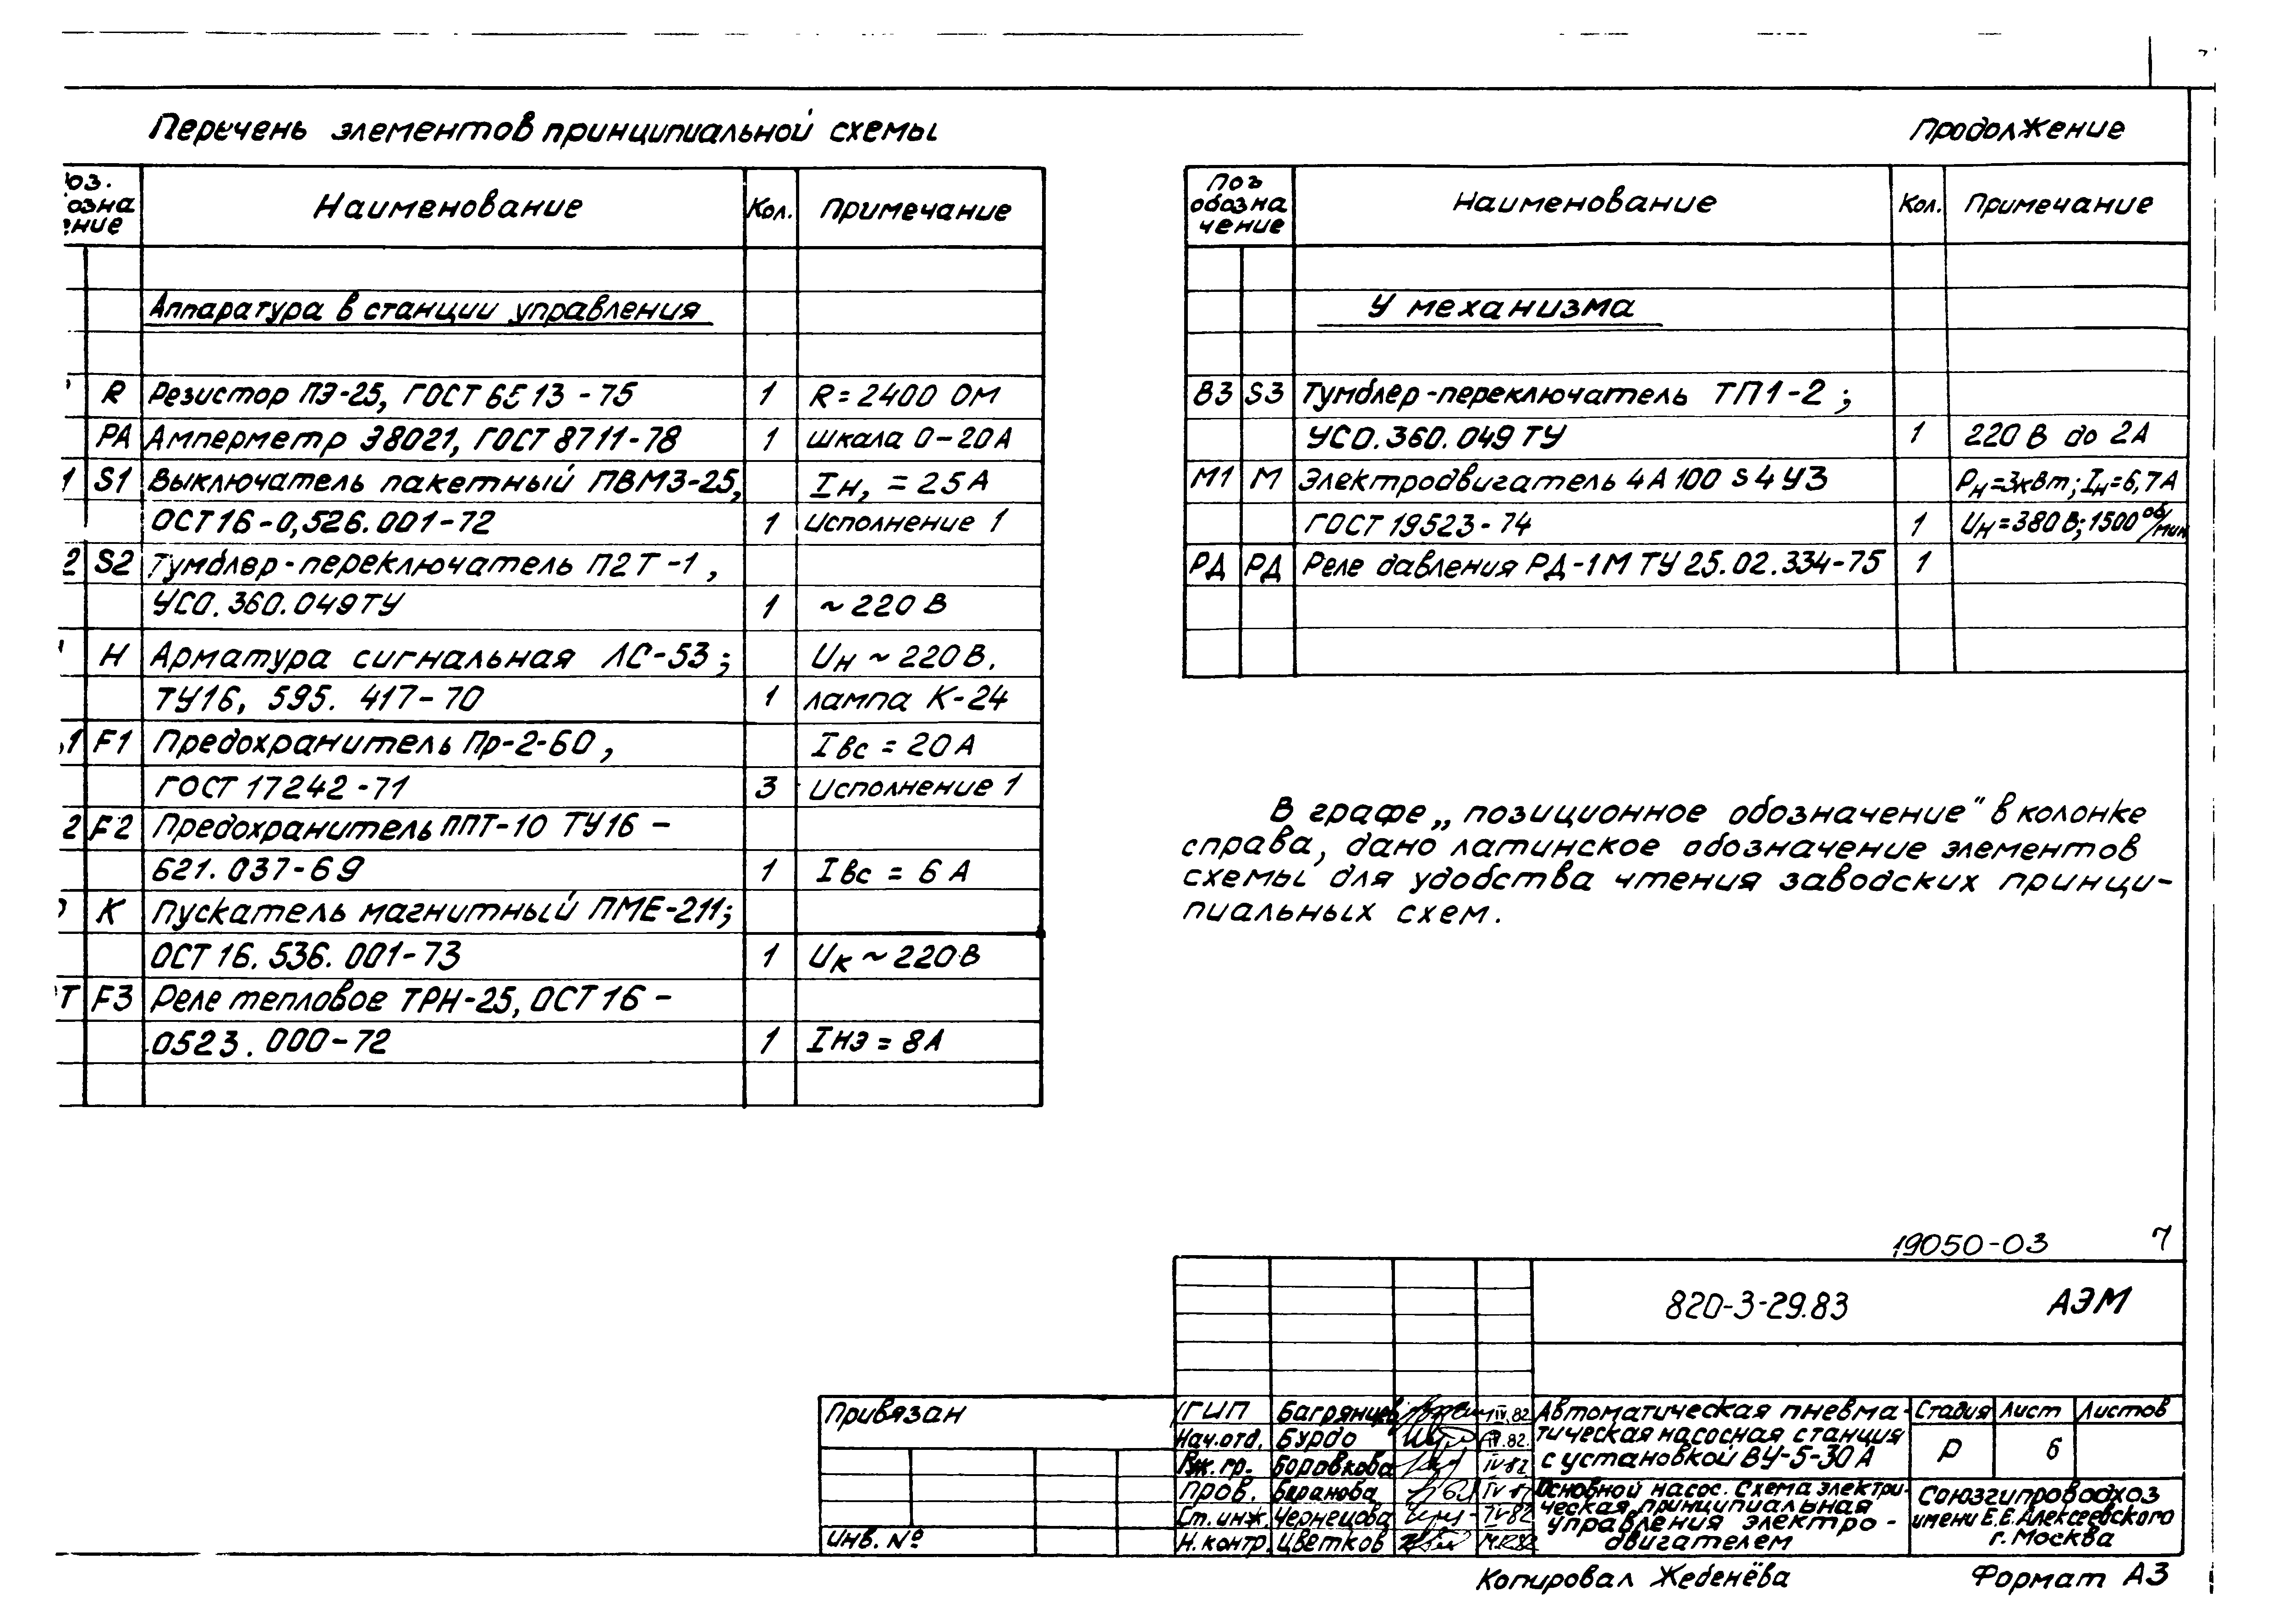 Перечень элементов принципиальной схемы
оз. обозна ение Наименование Кол. Примечание
Аппаратура в станции управления
R Резистор ПЭ-25, ГОСТ 6513 - 75 1 R = 2400 Ом
РА Амперметр Э8021, ГОСТ 8711-78 1 шкала 0-20А
1 S1 Выключатель пакетный ПВМ3-25, Iн, = 25А
ОСТ16-0,526.001-72 1 Исполнение 1
2 S2 Тумблер-переключатель П2Т-1,
УСО.360.049ТУ 1 ~220 В
Н Арматура сигнальная ЛС-53; Uн ~ 220В.
ТУ16, 595. 417-70 1 лампа К-24
1 F1 Предохранитель Пр-2-60, Iвс = 20А
ГОСТ 17242-71 3 Исполнение 1
2 F2 Предохранитель ППТ-10 ТУ16 -
621.037-69 1 Iвс = 6А
К Пускатель магнитный ПМЕ-211;
ОСТ 16. 536. 001-73 1 Uк ~ 220В
Т F3 Реле тепловое ТРН-25, ОСТ16 -
0523. 000-72 1 Iнэ = 8А
Продолжение
Поз обозна чение Наименование Кол. Примечание
У механизма
В3 S3 Тумблер-переключатель ТП1-2;
УСО.360.049 ТУ 1 220 В до 2А
М1 М Электродвигатель 4А100S4У3 Рн=3кВт; Iн=6,7А
ГОСТ 19523-74 1 Uн=380В; 1500 об/мин
РД РД Реле давления РД-1М ТУ 25.02.334-75 1
В графе „позиционное обозначение" в колонке
справа, дано латинское обозначение элементов
схемы для удобства чтения заводских принци-
пиальных схем.
19050-03 7
820-3-29.83 АЭМ
Привязан
Инв. №
ГИП Багрянцев IV.82
Нач.отд. Бурдо IV.82.
Рук. гр. Боровкова IV 82
Пров. Баранова IV
Ст. инж. Чернецова IV 82
Н. контр. Цветков
Автоматическая пневма-
тическая насосная станция
с установкой ВУ-5-30А
Стадия Лист Листов
Р 6
Основной насос. Схема электри-
ческая принципиальная
управления электро-
двигателем
Союзгипроводхоз
имени Е.Е.Алексеевского
г. Москва
Копировал Жебенёва Формат А3